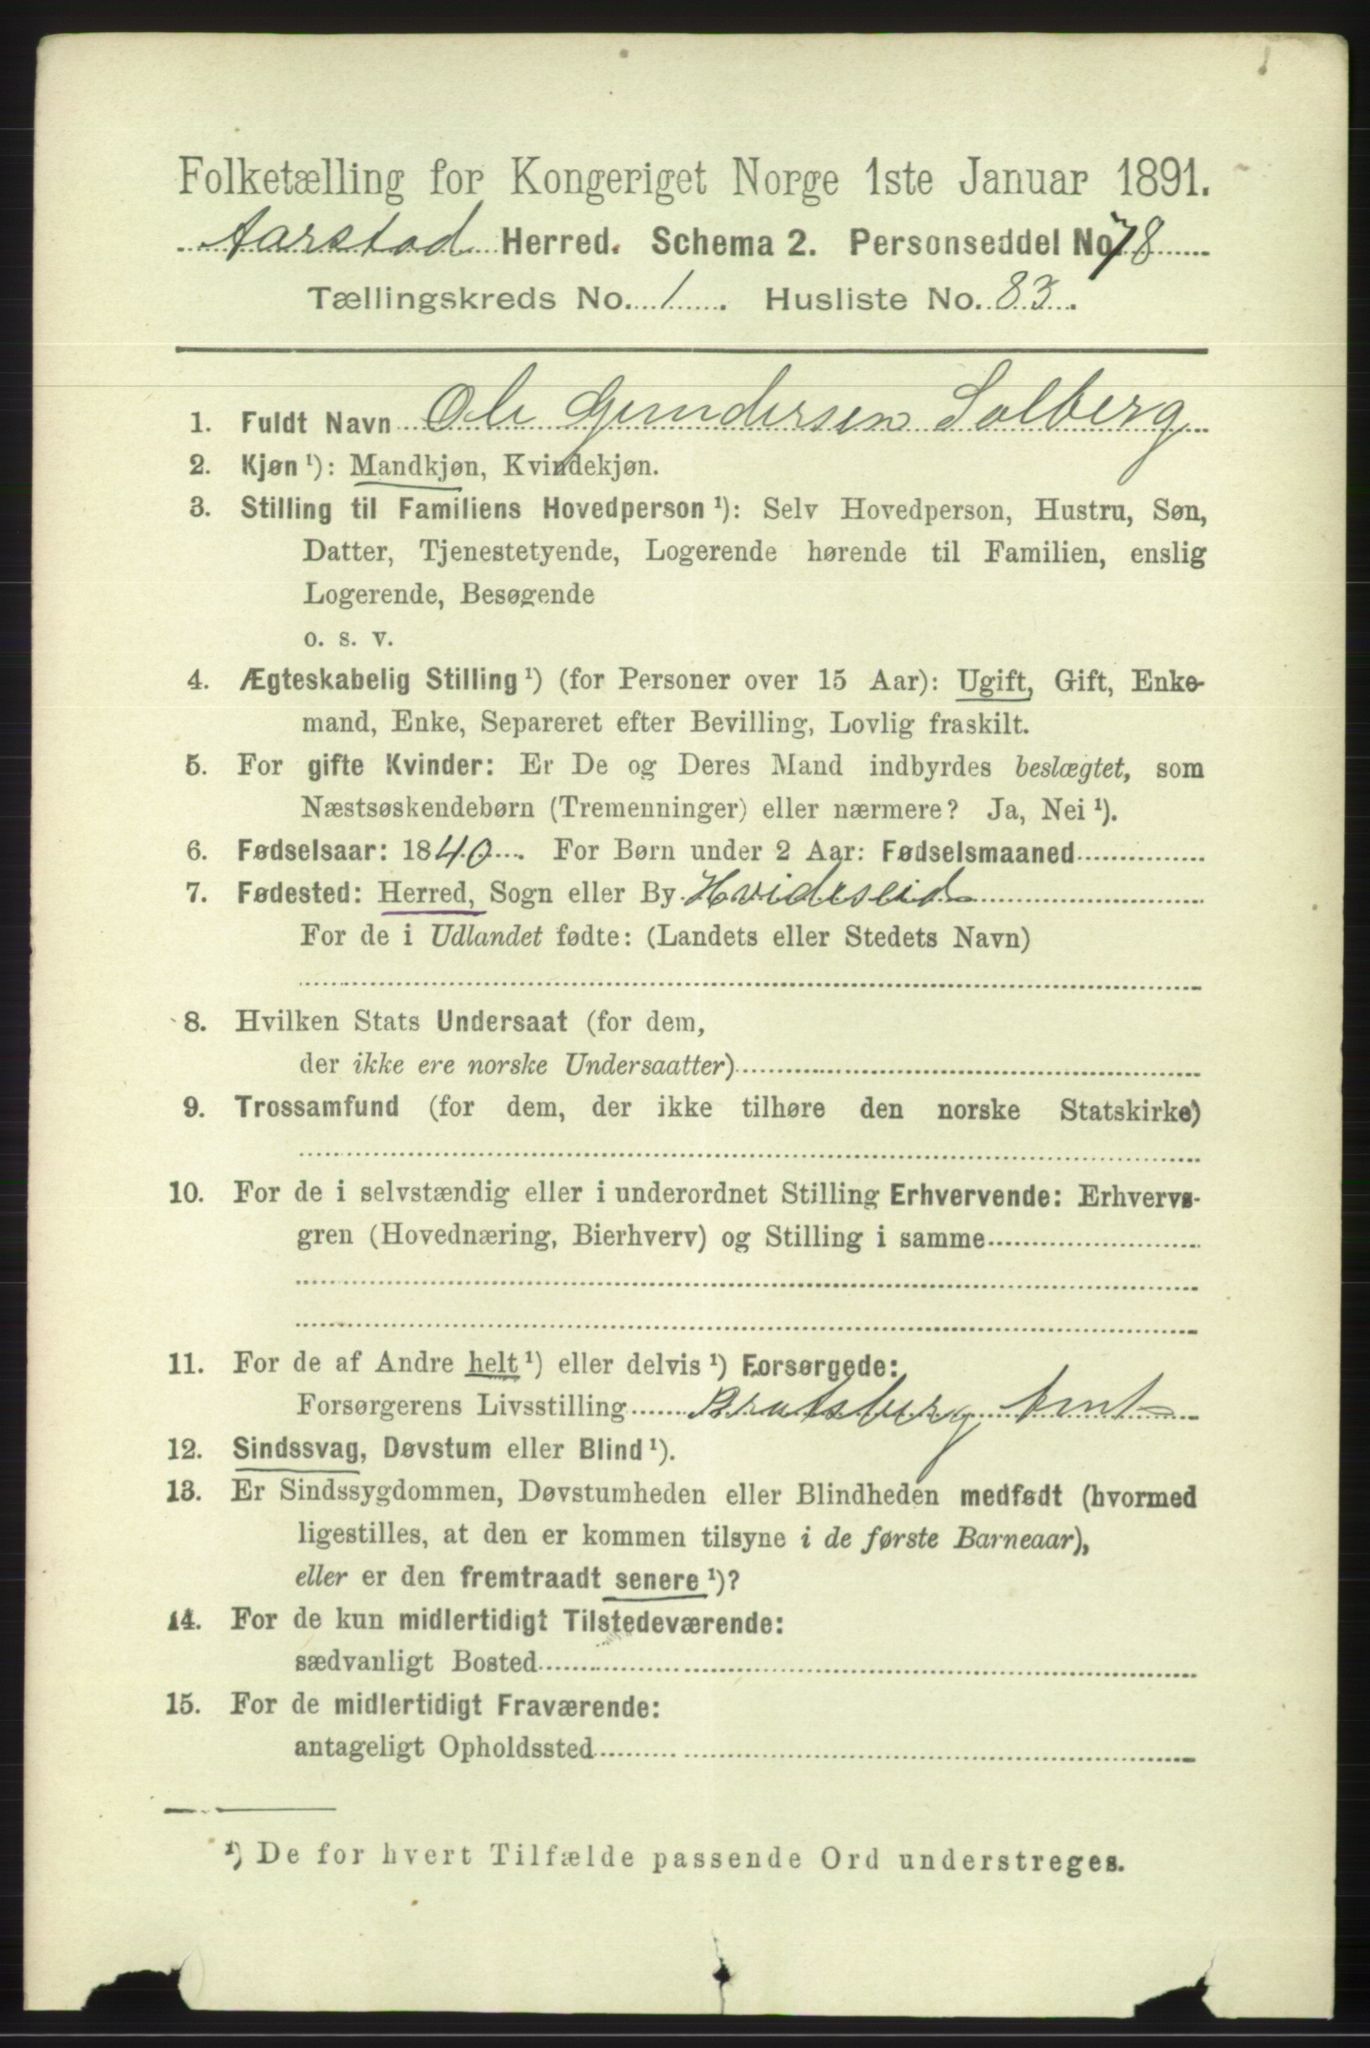 Folketælling for Kongeriget Norge 1ste Januar 1891.
Aarstad Herred. Schema 2. Personseddel No. 78
Tællingskreds No. 1. Husliste No. 83.
1. Fuldt Navn Ole Gundersen Solberg
2. Kjøn ¹): Mandkjøn, Kvindekjøn.
3. Stilling til Familiens Hovedperson ¹): Selv Hovedperson, Hustru, Søn,
Datter, Tjenestetyende, Logerende hørende til Familien, enslig
Logerende, Besøgende
o. s. v.
4. Ægteskabelig Stilling ¹) (for Personer over 15 Aar): Ugift, Gift, Enke-
mand, Enke, Separeret efter Bevilling, Lovlig fraskilt.
5. For gifte Kvinder: Er De og Deres Mand indbyrdes beslægtet, som
Næstsøskendebørn (Tremenninger) eller nærmere? Ja, Nei ¹).
6. Fødselsaar: 1840. For Børn under 2 Aar: Fødselsmaaned
7. Fødested: Herred, Sogn eller By Hvideseid
For de i Udlandet fødte: (Landets eller Stedets Navn)
8. Hvilken Stats Undersaat (for dem,
der ikke ere norske Undersaatter)
9. Trossamfund (for dem, der ikke tilhøre den norske Statskirke)
10. For de i selvstændig eller i underordnet Stilling Erhvervende: Erhvervs-
gren (Hovednæring, Bierhverv) og Stilling i samme
11. For de af Andre helt ¹) eller delvis ¹) Forsørgede:
Forsørgerens Livsstilling Bratsberg Amt
12. Sindssvag, Døvstum eller Blind ¹).
13. Er Sindssygdommen, Døvstumheden eller Blindheden medfødt (hvormed
ligestilles, at den er kommen tilsyne i de første Barneaar),
eller er den fremtraadt senere ¹)?
14. For de kun midlertidigt Tilstedeværende:
sædvanligt Bosted
15. For de midlertidigt Fraværende:
antageligt Opholdssted
¹) De for hvert Tilfælde passende Ord understreges.